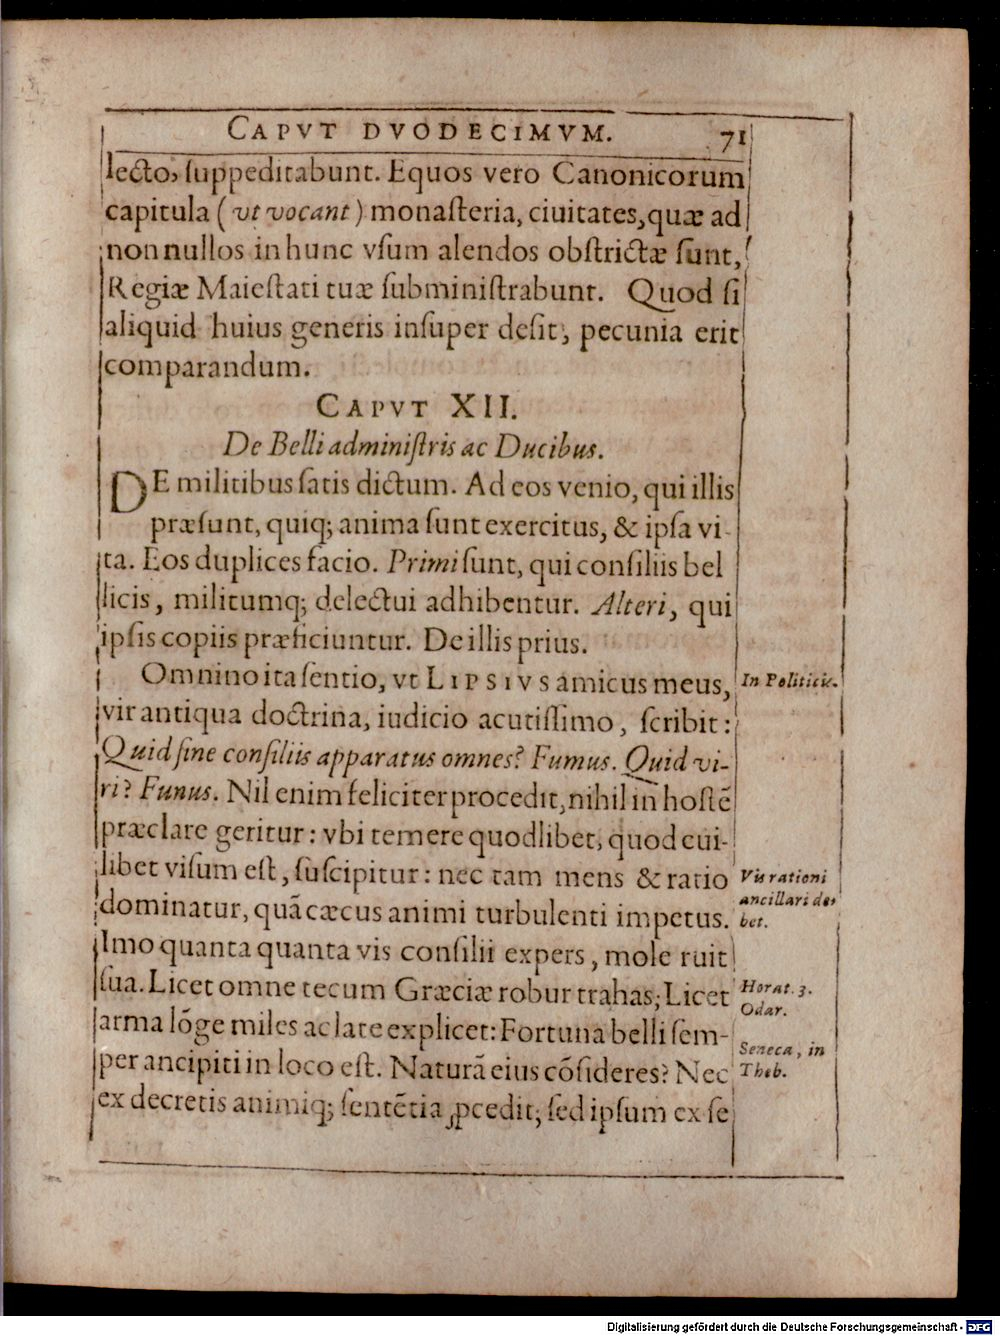 CAPVT DVODECIMVM. 71
lecto, ſuppeditabunt. Equos vero Canonicorum
capitula (vt vocant) monaſteria, ciuitates, quæ ad
nonnullos in hunc vſum alendos obſtrictæ ſunt,
Regiæ Maieſtati tuæ ſubminiſtrabunt. Quod ſi
aliquid huius generis inſuper deſit, pecunia erit
comparandum.
CAPVT XII.
De Belli adminiſtris ac Ducibus.
DE militibus ſatis dictum. Ad eos venio, qui illis
præſunt, quiq; anima ſunt exercitus, & ipſa vi-
ta. Eos duplices facio. Primi ſunt, qui conſiliis bel
licis, militumq; delectui adhibentur. Alteri, qui
ipſis copiis præficiuntur. De illis prius.
Omnino ita ſentio, vt LIPSIVS amicus meus,
In Politicis.
vir antiqua doctrina, iudicio acutiſſimo, ſcribit:
Quid ſine conſiliis apparatus omnes? Fumus. Quid vi-
ri? Funus. Nil enim feliciter procedit, nihil in hoſtē
præclare geritur: vbi temere quodlibet, quod cui-
libet viſum eſt, ſuſcipitur: nec tam mens & ratio
Vis rationi
ancillari de-
bet.
dominatur, quā cæcus animi turbulenti impetus.
Imo quanta quanta vis conſilii expers, mole ruit
ſua. Licet omne tecum Græciæ robur trahas; Licet
Horat. 3.
Odar.
arma lōge miles ac late explicet: Fortuna belli ſem-
Seneca, in
Theb.
per ancipiti in loco eſt. Naturā eius cōſideres? Nec
ex decretis animiq; ſentētia ꝓcedit; ſed ipſum ex ſe
Digitalisierung gefördert durch die Deutsche Forschungsgemeinschaft - DFG